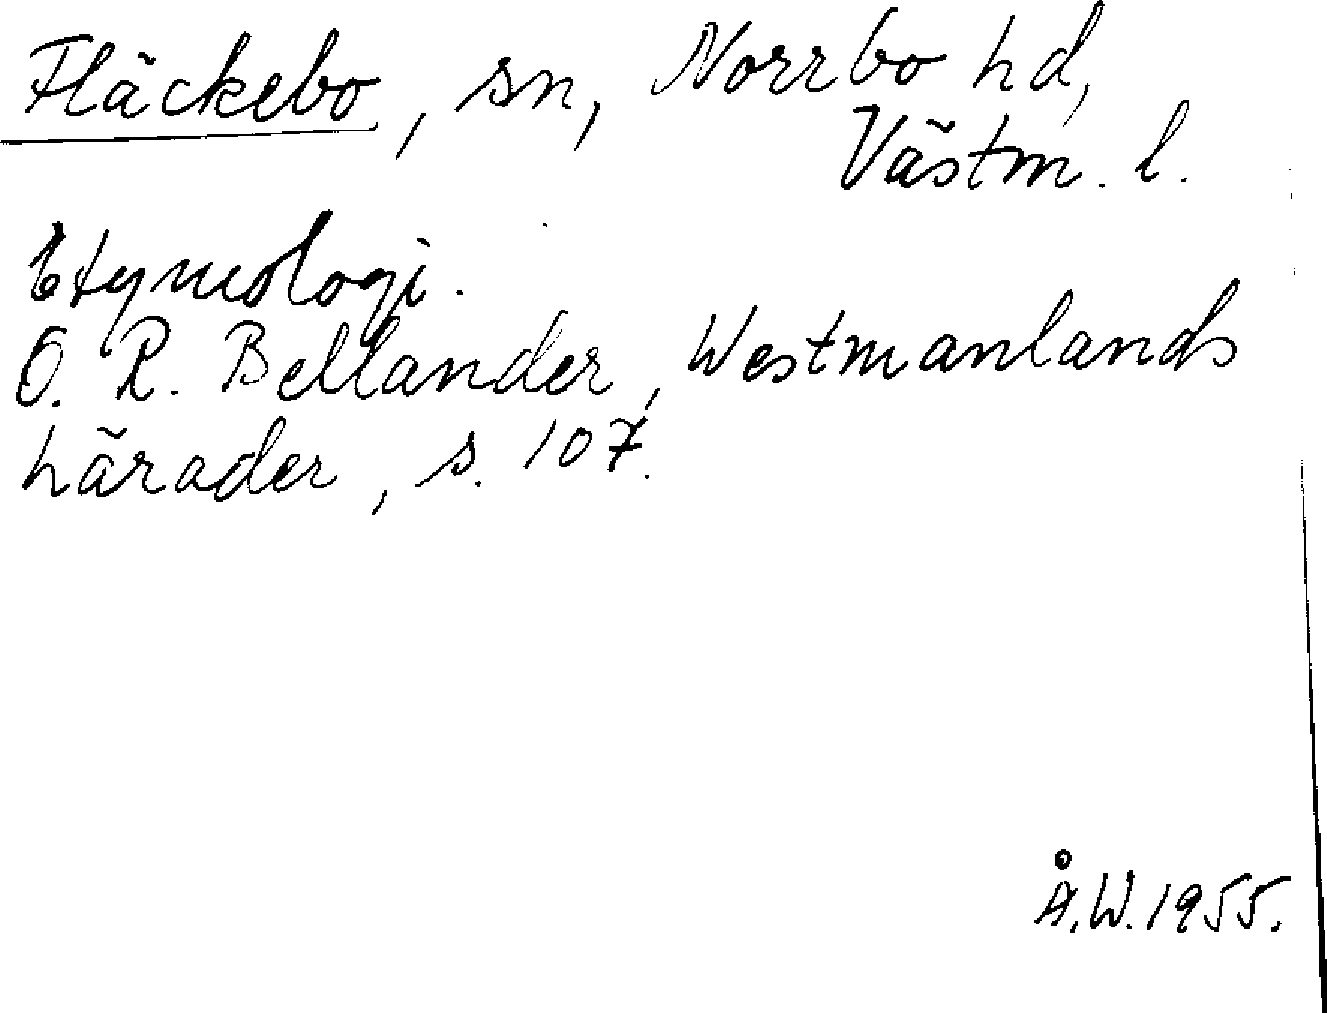 Fläckebo, sn, Norrbo hd,
Västm. l.
Etymologi.
O. R. Bellander, Westmanlands
härader, s. 107.
Å.W. 1955.